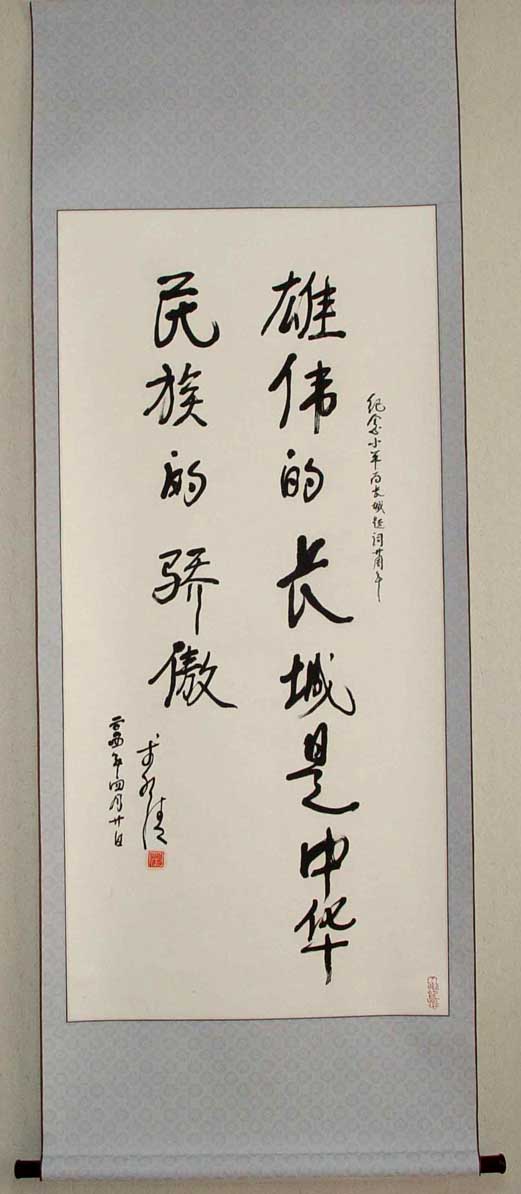 纪念小平为长城题词廿周年
雄伟的长城是中华
民族的骄傲
年四月廿日